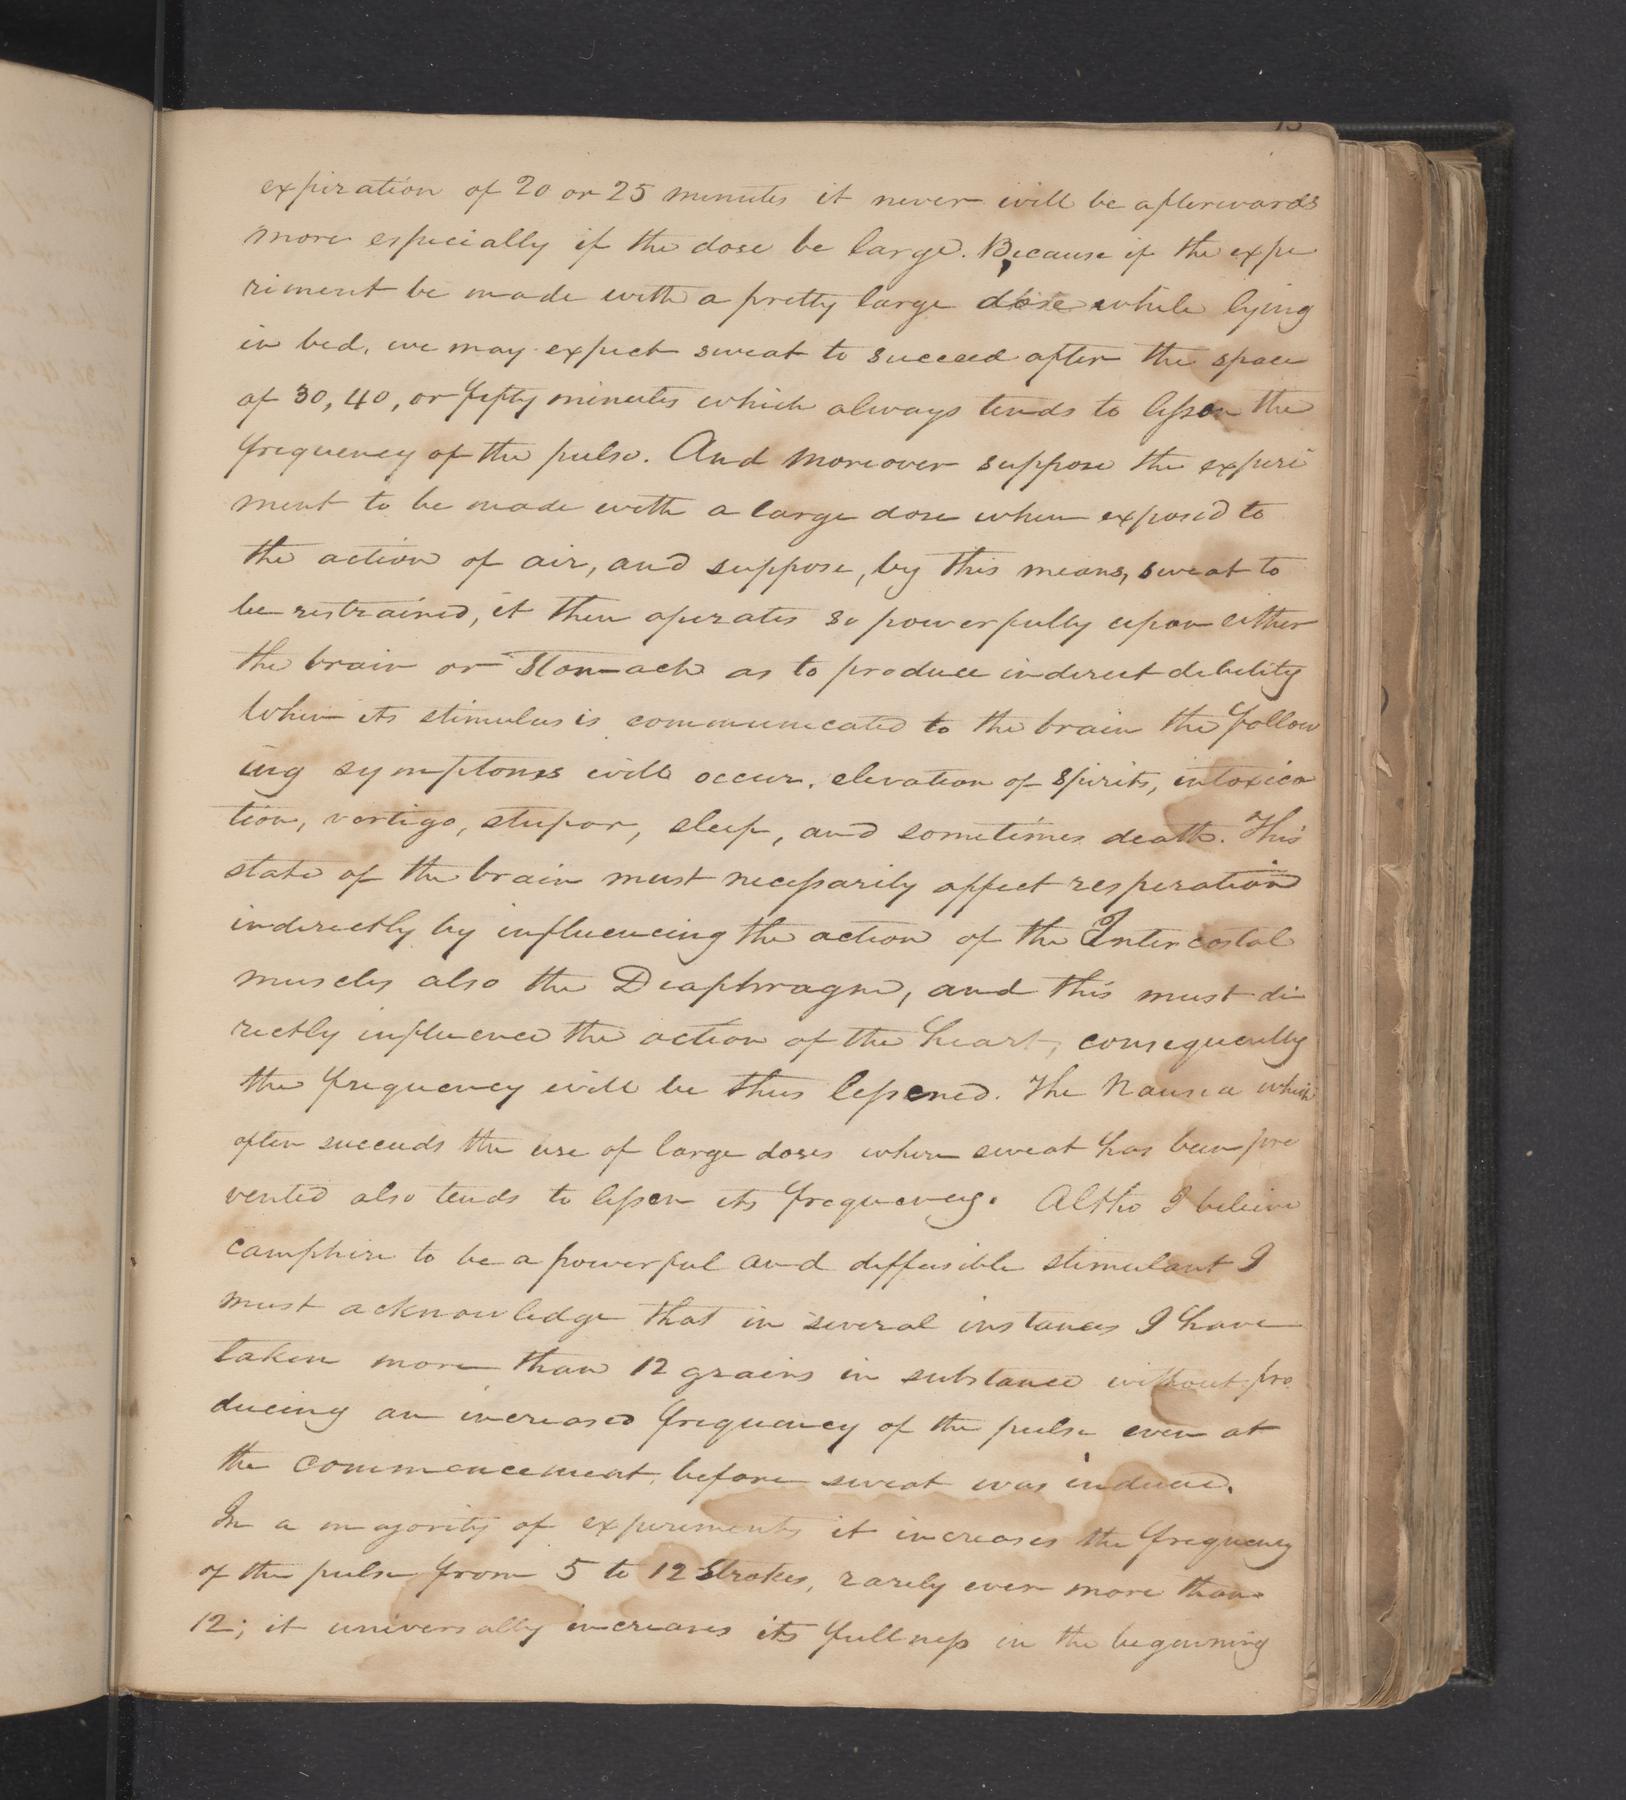 expiration of 20 or 25 minutes it never will be afterwards
more especially if the dose be large. Because if the expe
riment be made with a pretty large dose while lying
in bed, we may expect sweat to succeed after the space
of 30, 40, or fifty minutes which always tends to lessen the
frequency of the pulse. And moreover suppose the experi
ment to be made with a large dose when exposed to
the action of air, and suppose, by this means, sweat to
be restrained, it then operates so powerfully upon either
the brain or Stomach as to produce indirect debility
When its stimulus is communicated to the brain the follow
ing symptoms will occur. elevation of spirits, intoxica
tion, vertigo, stupor, sleep, and sometimes death. This
state of the brain must necessarily affect resperation
indirectly by influencing the action of the Intercostal
muscles also the Diaphragm, and this must di
rectly influence the action of the heart, consequently
the frequency will be thus lessened. The Nausea which
often succeeds the use of large doses when sweat has been pre
vented also tends to lessen its frequency. Altho I believe
camphire to be a powerful and diffusible stimulant I
must acknowledge that in several instances I have
taken more than 12 grains in substance without pro
ducing an increased frequency of the pulse even at
the commencement, before sweat was induced.
In a majority of experiments it increases the frequency
of the pulse from 5 to 12 Strokes, rarely ever more than
12; it universally increases its fullness in the begenning